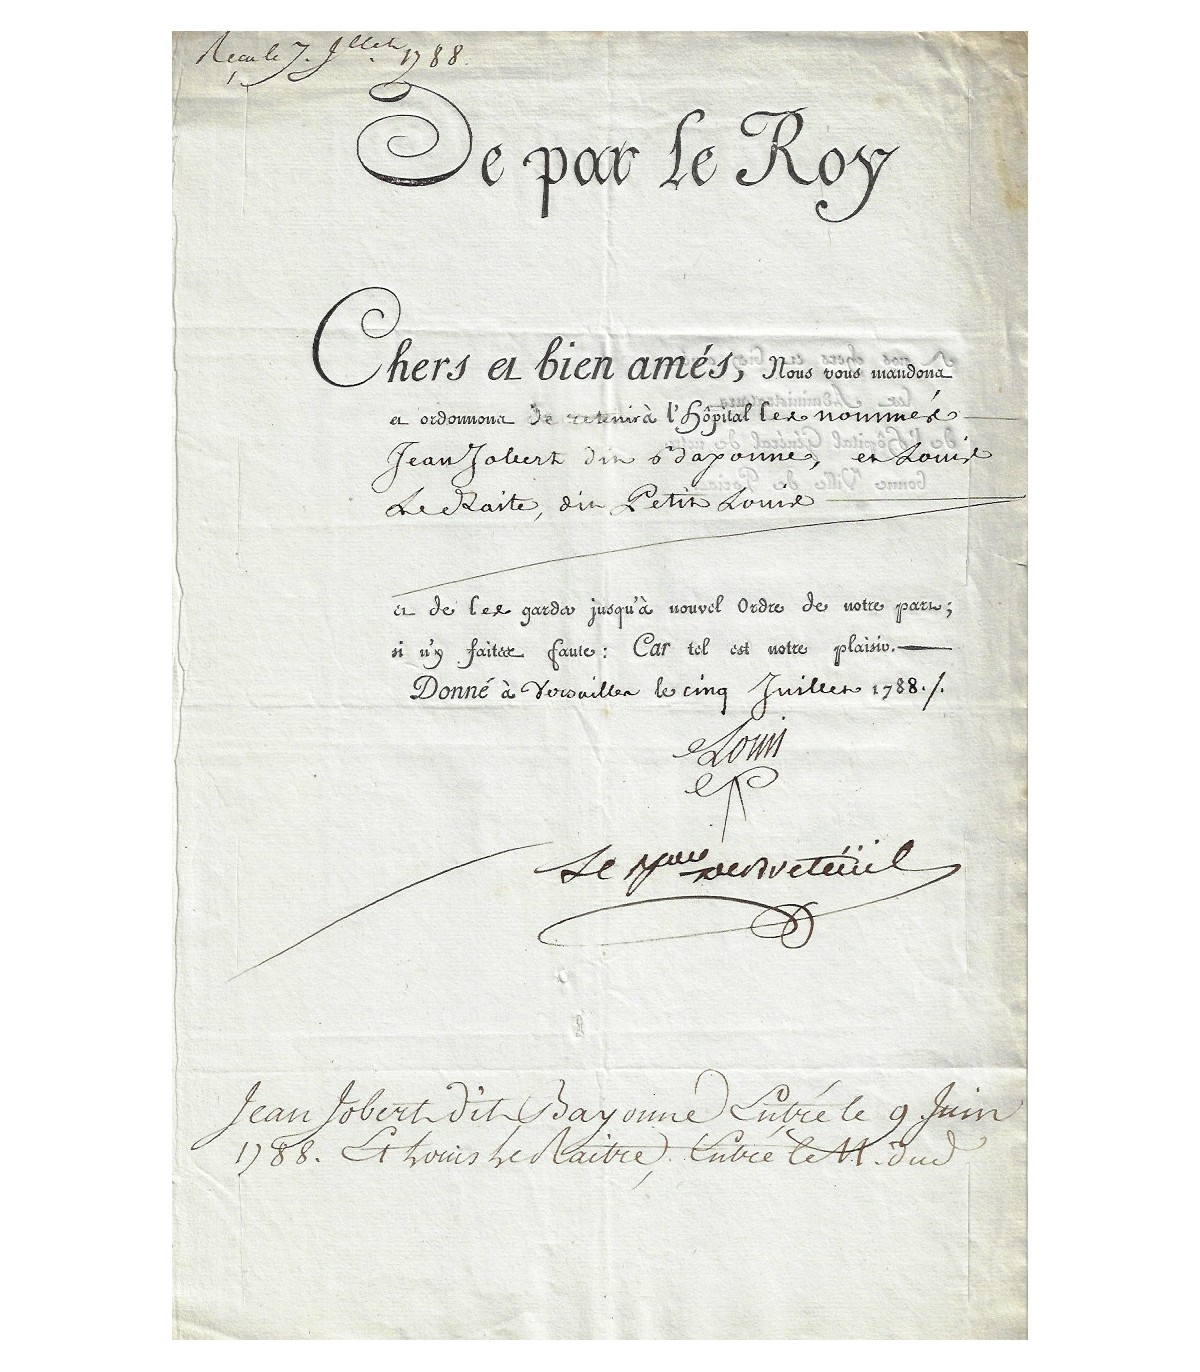 Reçu le 7. Jllet. 1788.
De par le Roy
Chers et bien amés, Nous vous mandons
et ordonnons de retenir à l'Hôpital les nommés
Jean Jobert dit Bayonne, et Louis
Le Maite, dit Petit Louis
et de les garder jusqu'à nouvel Ordre de notre part;
si n'y faites faute: Car tel est notre plaisir.
Donné à Versailles le cinq Juillet 1788./.
Louis
Le de Breteüil
Jean Jobert dit Bayonne Entré le 9 Juin
1788. Et Louis Le Entré le 11. dud
A nos chers et bien
les Administrateurs
de l'Hôpital Général de notre
bonne Ville de Paris